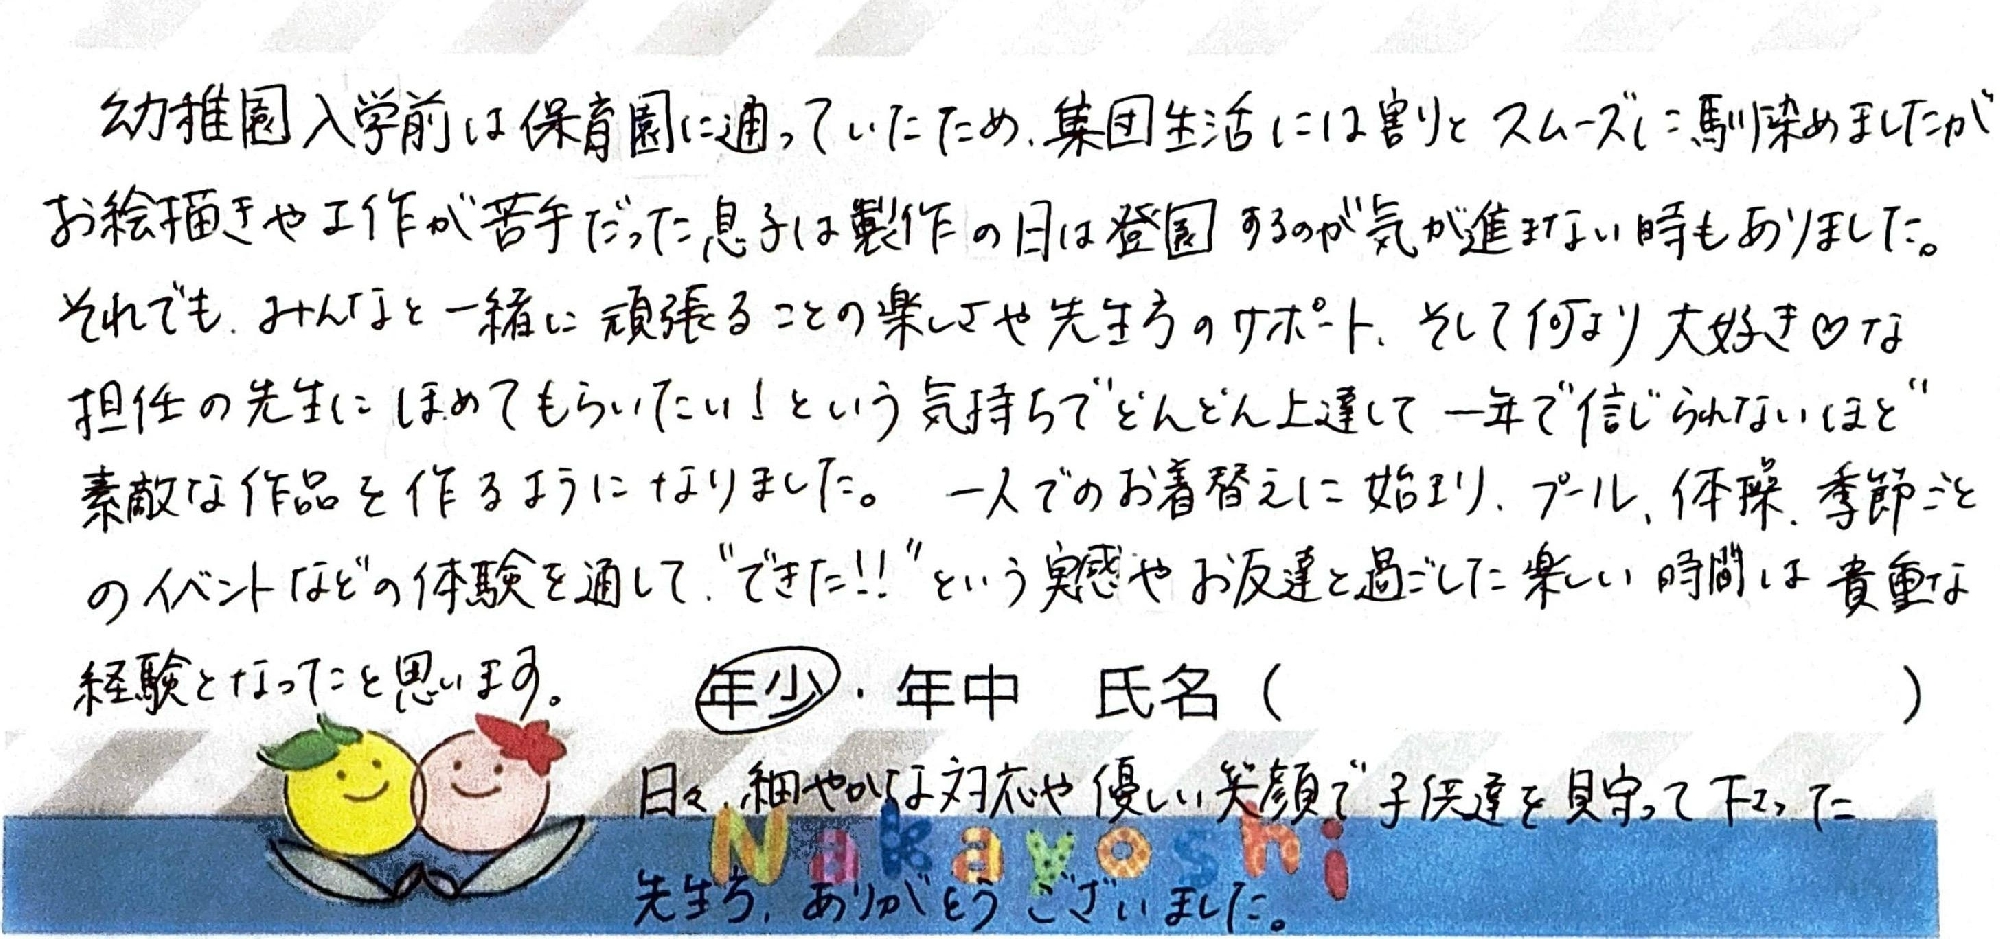 幼稚園入学前は保育園に通っていたため、集団生活には割りとスムーズに馴染めましたが
お絵描きや工作が苦手だった息子は製作の日は登園するのが気が進まない時もありました。
それでも、みんなと一緒に頑張ることの楽しさや先生方のサポート、そして何より大好き♡な
担任の先生にほめてもらいたい!という気持ちでどんどん上達して一年で信じられないほど
素敵な作品を作るようになりました。 一人でのお着替えに始まり、プール、体操、季節ごと
のイベントなどの体験を通して、“できた!!”という実感やお友達と過ごした楽しい時間は貴重な
経験となったこと思います。
年少・年中 氏名( )
日々、細やかな対応や優しい笑顔で子供達を見守って下さった
Nakayoshi
先生方、ありがとうございました。